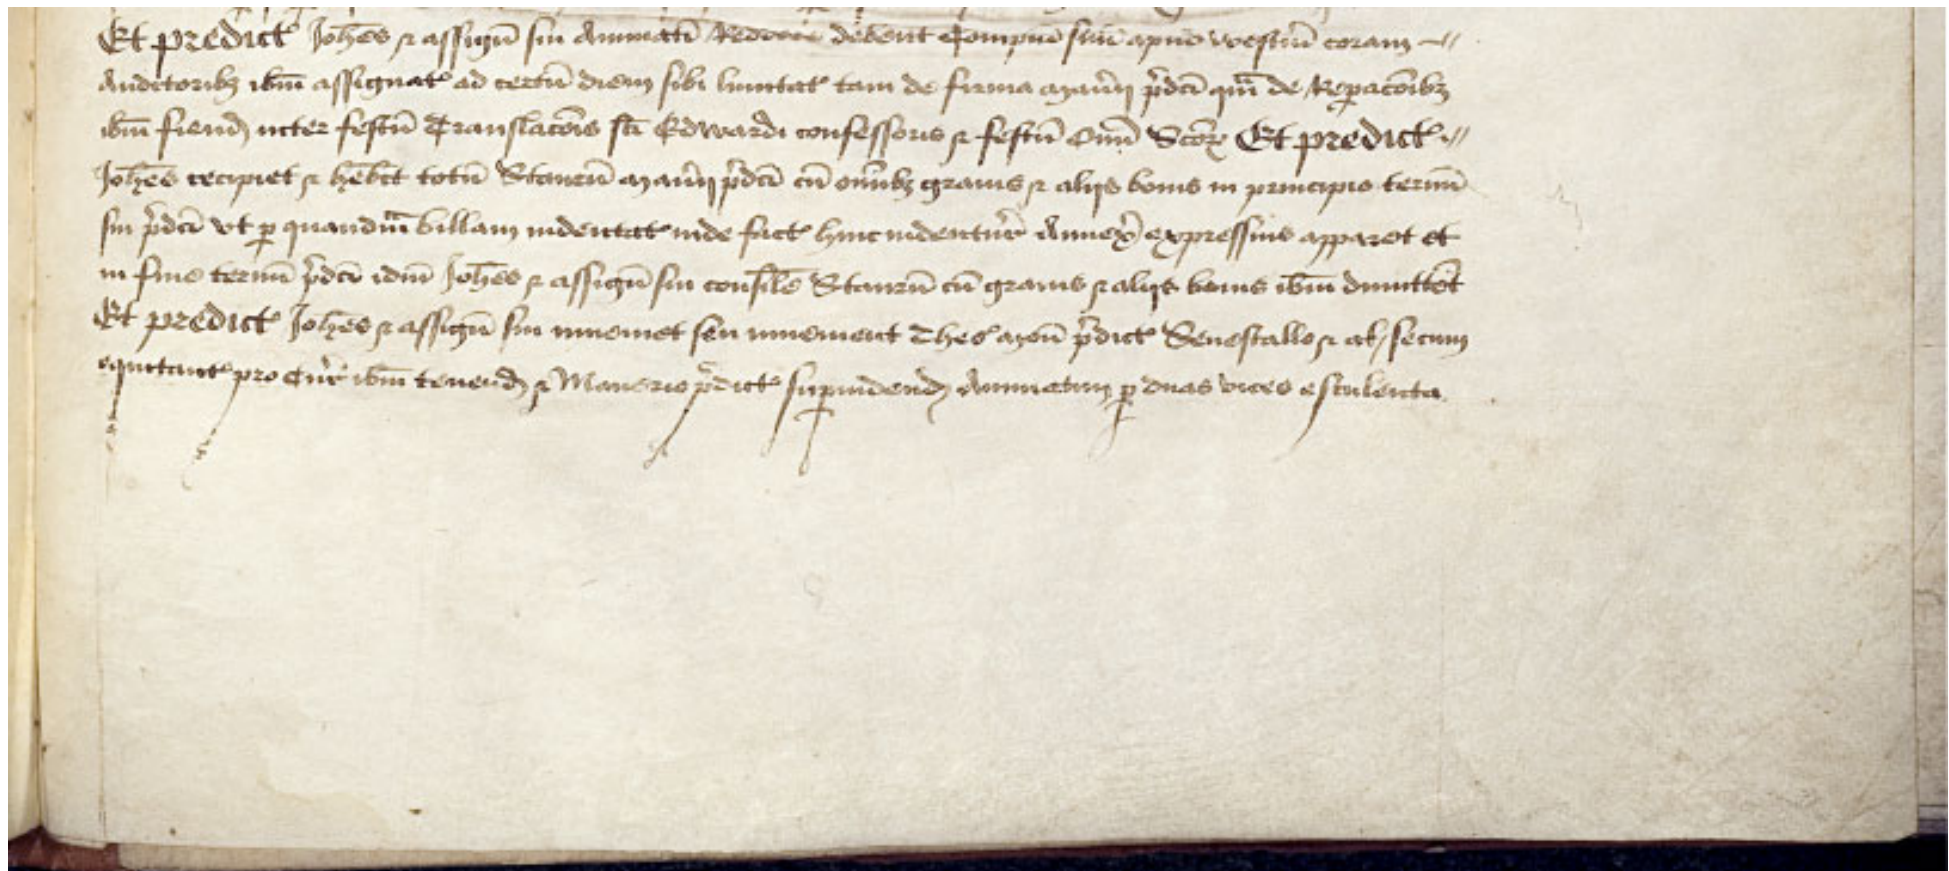 Et predict' Joh̄es ⁊ assigñ sui Annuati Reddere debent Compu suū apud Westm̄ coram
Auditorib3 ib̄m assignat' ad certū diem sibi limitat' tam de firma Man̄ij p̄dc̄i qm̄ de Rep̱ac̄oib3
ib̄m fiend inter festū Translac̄ois sc̄i Edwardi confessoris ⁊ festū Om̄ Sc̄oꝝ Et predict'
Joh̄es recipiet ⁊ hēbit totū Staurū Man̄ij p̄dc̄i cū om̄ib3 granis ⁊ alijs bonis in principio termī
sui p̄dc̄i vt ꝑ quandm̄ billam indentat' inde fact' huic indentur̄ Annex̄ expressius apparet et
in fine termī p̄dc̄i idm̄ Joh̄es ⁊ assigñ sui consīlē Staurū cū granis ⁊ alijs bonis ib̄m dimittet
Et predict' Joh̄es ⁊ assigñ sui inueniet seu inuenient Thes' Mon̄ p̄dict' Senescallo ⁊ al' secum
equitant' pro Cur̄ ib̄m tenend ⁊ Manerio p̄dict' suꝑuidend Annuatim ꝑ duas vices esculenta